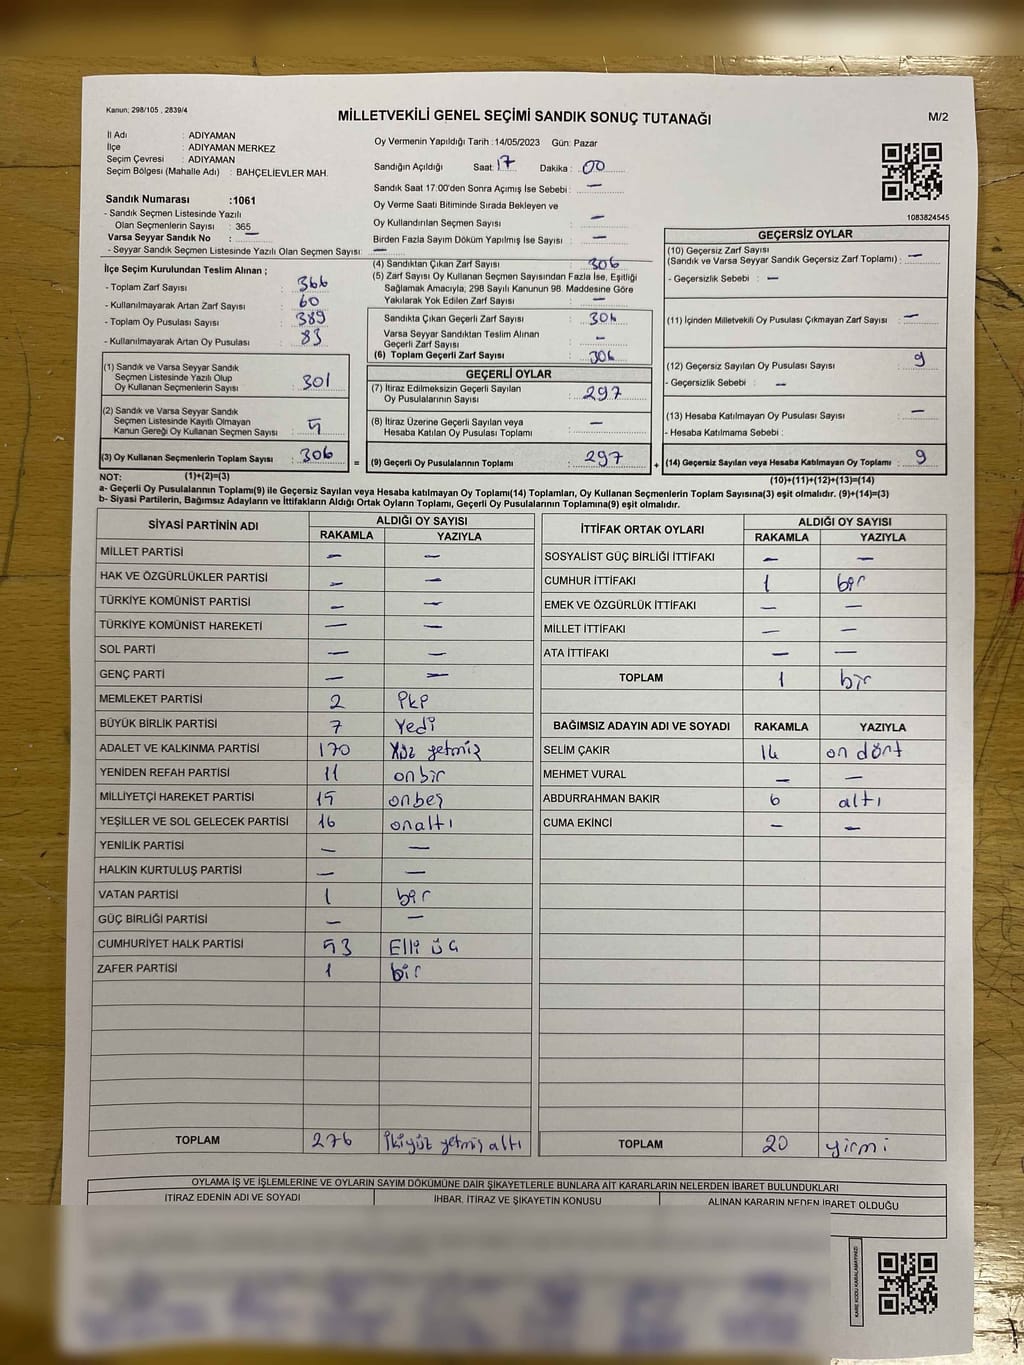 Kanun; 298/105 , 2839/4
MİLLETVEKİLİ GENEL SEÇİMİ SANDIK SONUÇ TUTANAĞI
M/2
İl Adı : ADIYAMAN
İlçe : ADIYAMAN MERKEZ
Seçim Çevresi : ADIYAMAN
Seçim Bölgesi (Mahalle Adı) : BAHÇELİEVLER MAH.
Sandık Numarası :1061
- Sandık Seçmen Listesinde Yazılı
Olan Seçmenlerin Sayısı : 365
Varsa Seyyar Sandık No : —
- Seyyar Sandık Seçmen Listesinde Yazılı Olan Seçmen Sayısı: —
İlçe Seçim Kurulundan Teslim Alınan ;
- Toplam Zarf Sayısı : 366
- Kullanılmayarak Artan Zarf Sayısı : 60
- Toplam Oy Pusulası Sayısı : 389
- Kullanılmayarak Artan Oy Pusulası : 83
(1) Sandık ve Varsa Seyyar Sandık
Seçmen Listesinde Yazılı Olup
Oy Kullanan Seçmenlerin Sayısı : 301
(2) Sandık ve Varsa Seyyar Sandık
Seçmen Listesinde Kayıtlı Olmayan
Kanun Gereği Oy Kullanan Seçmen Sayısı : 5
(3) Oy Kullanan Seçmenlerin Toplam Sayısı : 306
Oy Vermenin Yapıldığı Tarih : 14/05/2023 Gün: Pazar
Sandığın Açıldığı Saat: 17 Dakika : 00
Sandık Saat 17:00'den Sonra Açımış İse Sebebi : —
Oy Verme Saati Bitiminde Sırada Bekleyen ve
Oy Kullandırılan Seçmen Sayısı : —
Birden Fazla Sayım Döküm Yapılmış İse Sayısı : —
(4) Sandıktan Çıkan Zarf Sayısı : 306
(5) Zarf Sayısı Oy Kullanan Seçmen Sayısından Fazla İse, Eşitliği
Sağlamak Amacıyla; 298 Sayılı Kanunun 98. Maddesine Göre
Yakılarak Yok Edilen Zarf Sayısı : —
Sandıkta Çıkan Geçerli Zarf Sayısı : 306
Varsa Seyyar Sandıktan Teslim Alınan
Geçerli Zarf Sayısı : —
(6) Toplam Geçerli Zarf Sayısı : 306
GEÇERLİ OYLAR
(7) İtiraz Edilmeksizin Geçerli Sayılan
Oy Pusulalarının Sayısı : 297
(8) İtiraz Üzerine Geçerli Sayılan veya
Hesaba Katılan Oy Pusulası Toplamı : —
= (9) Geçerli Oy Pusulalarının Toplamı : 297
1083824545
GEÇERSİZ OYLAR
(10) Geçersiz Zarf Sayısı
(Sandık ve Varsa Seyyar Sandık Geçersiz Zarf Toplamı) : —
- Geçersizlik Sebebi : —
(11) İçinden Milletvekili Oy Pusulası Çıkmayan Zarf Sayısı : —
(12) Geçersiz Sayılan Oy Pusulası Sayısı : 9
- Geçersizlik Sebebi : —
(13) Hesaba Katılmayan Oy Pusulası Sayısı : —
- Hesaba Katılmama Sebebi :
+ (14) Geçersiz Sayılan veya Hesaba Katılmayan Oy Toplamı : 9
NOT: (1)+(2)=(3)
(10)+(11)+(12)+(13)=(14)
a- Geçerli Oy Pusulalarının Toplamı(9) ile Geçersiz Sayılan veya Hesaba katılmayan Oy Toplamı(14) Toplamları, Oy Kullanan Seçmenlerin Toplam Sayısına(3) eşit olmalıdır. (9)+(14)=(3)
b- Siyasi Partilerin, Bağımsız Adayların ve İttifakların Aldığı Ortak Oyların Toplamı, Geçerli Oy Pusulalarının Toplamına(9) eşit olmalıdır.
SİYASİ PARTİNİN ADI ALDIĞI OY SAYISI
RAKAMLA YAZIYLA
MİLLET PARTİSİ — —
HAK VE ÖZGÜRLÜKLER PARTİSİ — —
TÜRKİYE KOMÜNİST PARTİSİ — —
TÜRKİYE KOMÜNİST HAREKETİ — —
SOL PARTİ — —
GENÇ PARTİ — —
MEMLEKET PARTİSİ 2
BÜYÜK BİRLİK PARTİSİ 7 Yedi
ADALET VE KALKINMA PARTİSİ 170 Yüz yetmiş
YENİDEN REFAH PARTİSİ 11 onbir
MİLLİYETÇİ HAREKET PARTİSİ 15 onbeş
YEŞİLLER VE SOL GELECEK PARTİSİ 16 onaltı
YENİLİK PARTİSİ — —
HALKIN KURTULUŞ PARTİSİ — —
VATAN PARTİSİ 1 bir
GÜÇ BİRLİĞİ PARTİSİ — —
CUMHURİYET HALK PARTİSİ 53 Elli üç
ZAFER PARTİSİ 1 bir
TOPLAM 276 İkiyüz yetmiş altı
İTTİFAK ORTAK OYLARI ALDIĞI OY SAYISI
RAKAMLA YAZIYLA
SOSYALİST GÜÇ BİRLİĞİ İTTİFAKI — —
CUMHUR İTTİFAKI 1 bir
EMEK VE ÖZGÜRLÜK İTTİFAKI — —
MİLLET İTTİFAKI — —
ATA İTTİFAKI — —
TOPLAM 1 bir
BAĞIMSIZ ADAYIN ADI VE SOYADI RAKAMLA YAZIYLA
SELİM ÇAKIR 14 on dört
MEHMET VURAL — —
ABDURRAHMAN BAKIR 6 altı
CUMA EKİNCİ — —
TOPLAM 20 yirmi
OYLAMA İŞ VE İŞLEMLERİNE VE OYLARIN SAYIM DÖKÜMÜNE DAİR ŞİKAYETLERLE BUNLARA AİT KARARLARIN NELERDEN İBARET BULUNDUKLARI
İTİRAZ EDENİN ADI VE SOYADI İHBAR, İTİRAZ VE ŞİKAYETİN KONUSU ALINAN KARARIN NEDEN İBARET OLDUĞU
KARE KODU KARALAMAYINIZ!